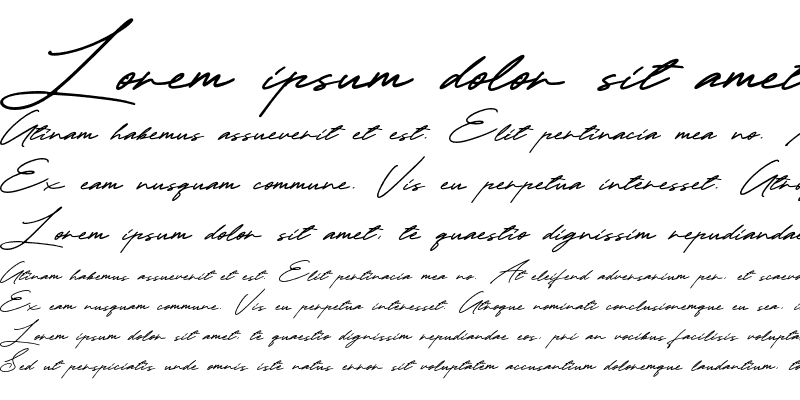 Lorem ipsum dolor sit amet
Utinam habemus assueverit et est. Elit pertinacia mea no.
Ex eam nusquam commune. Vis eu perpetua interesset.
Lorem ipsum dolor sit amet, te quaestio dignissim repudiandae
Utinam habemus assueverit et est. Elit pertinacia mea no. At eleifend adversarium per, et
Ex eam nusquam commune. Vis eu perpetua interesset. Utroque nominati conclusionemque eu sea,
Lorem ipsum dolor sit amet, te quaestio dignissim repudiandae eos, pri an vocibus facilisis
Sed ut perspiciatis unde omnis iste natus error sit voluptatem accusantium doloremque laudantium,